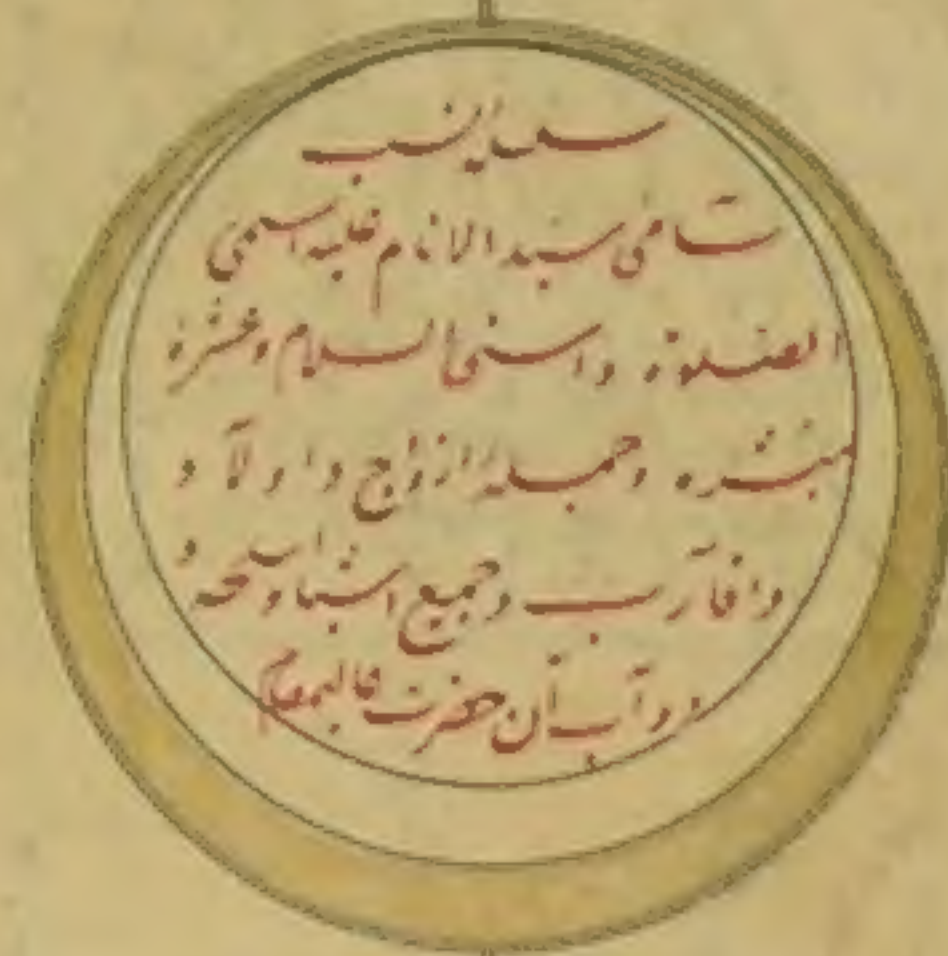 سلسلۀ نسب
سامی سید الانام علیه اسمی
الصلوة و اسنی السلام و عشرۀ
مبشره و جمله ازواج و اولاد
و اقارب و جمیع اشیا و اسلحه و
دوآب آن حضرت عالیمقام